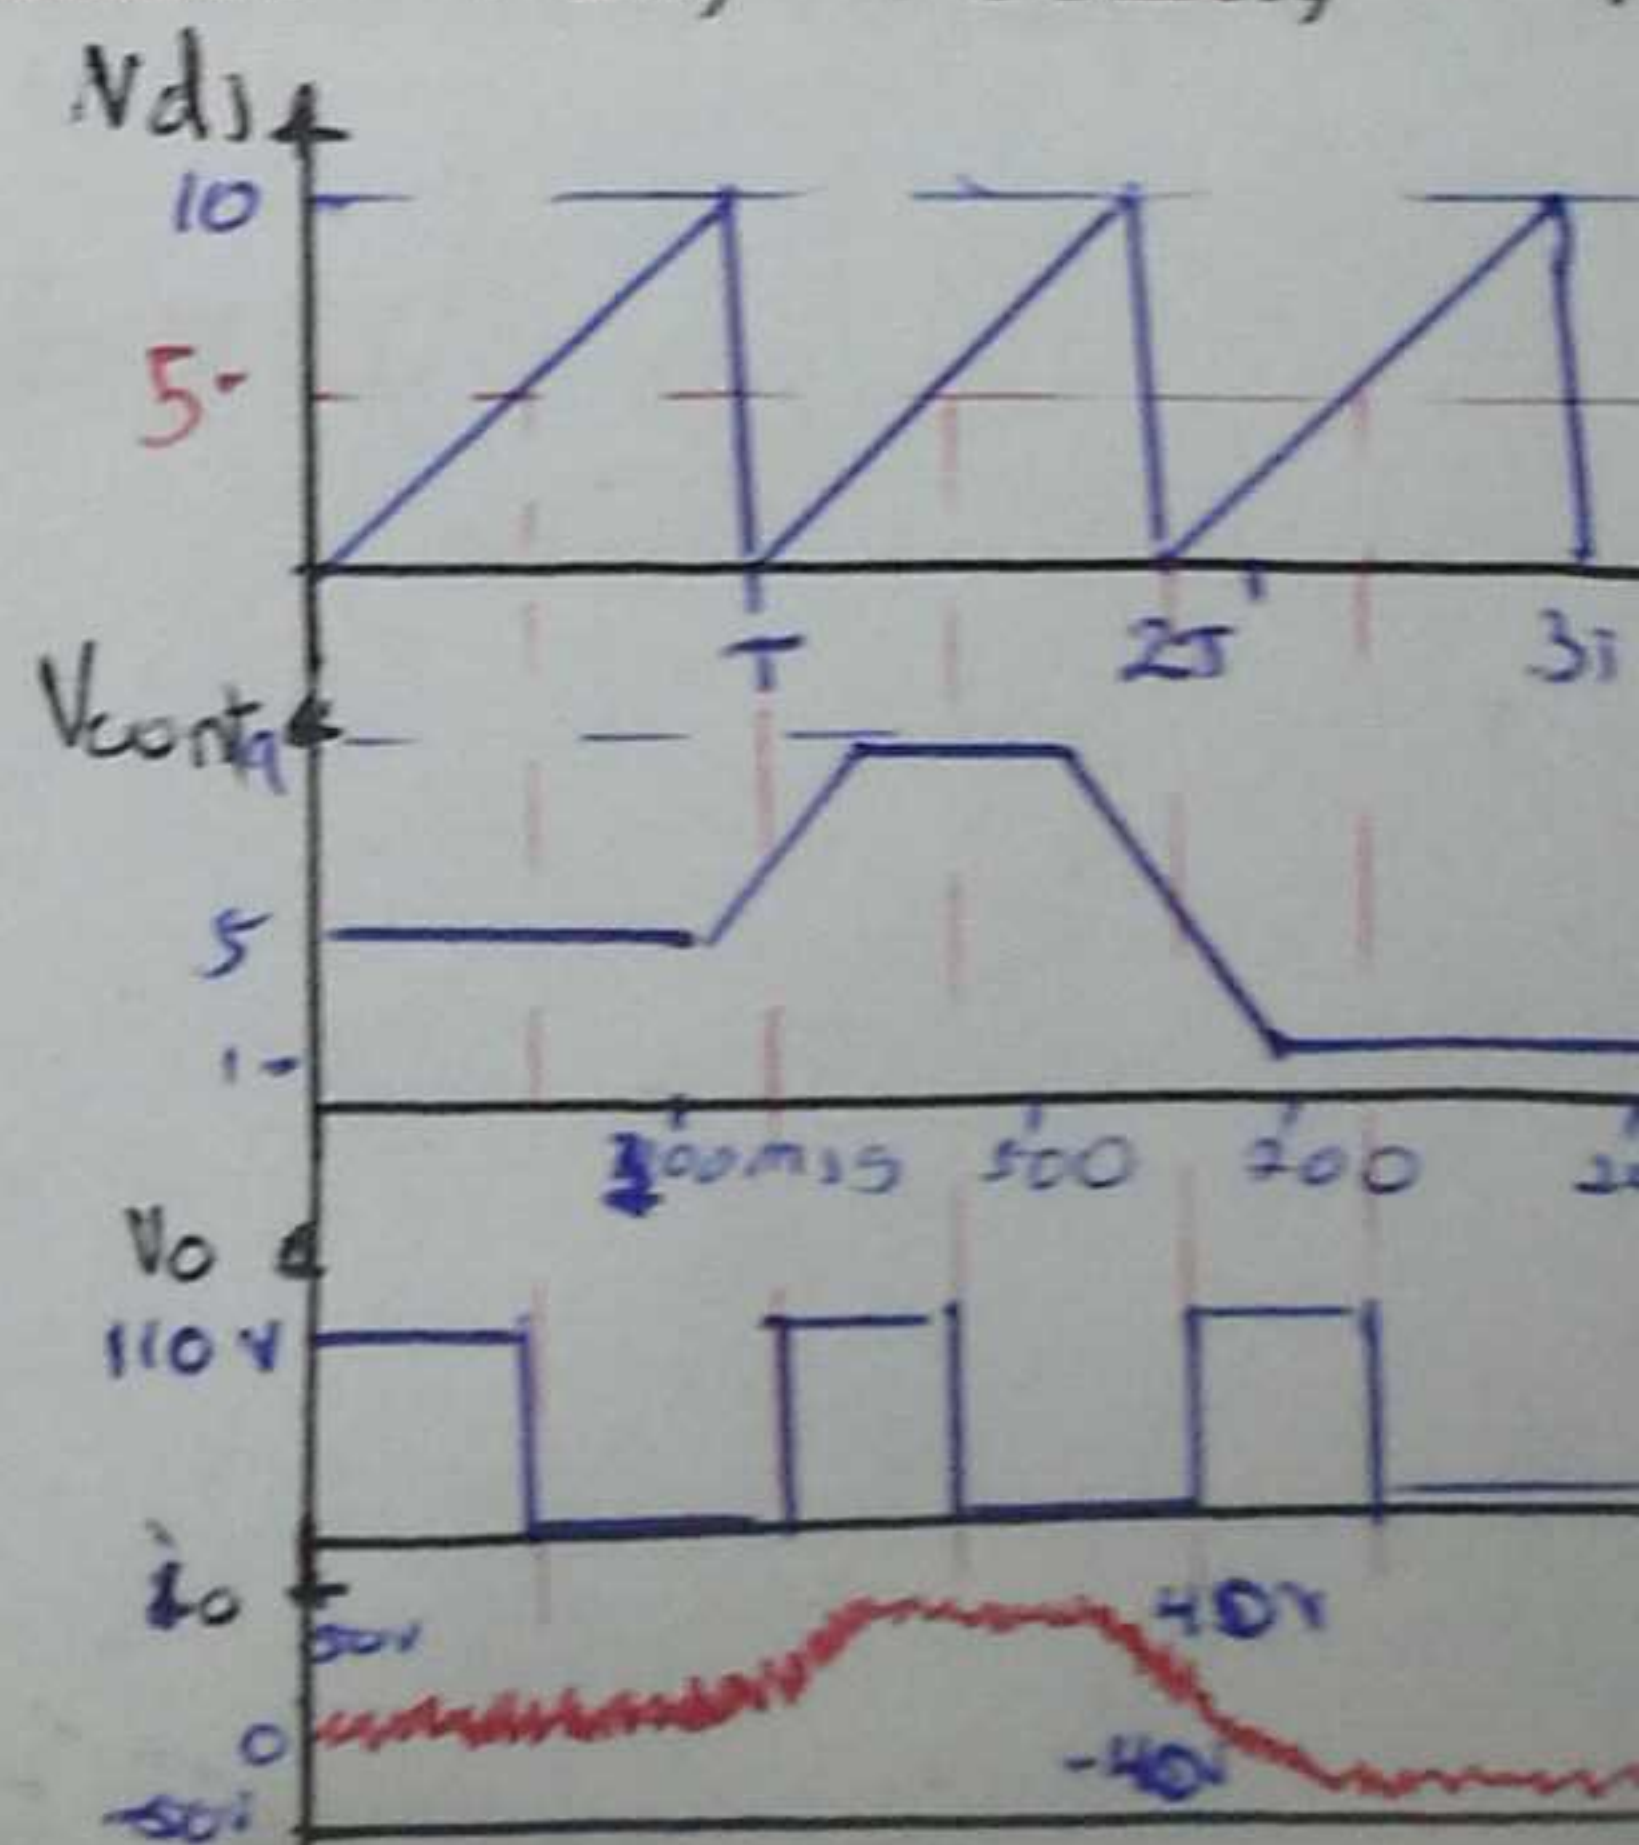 Vds
10
5-
T 2T 3T
Vcont
9
5
1-
300msg 500 700
Vo
110 V
io
50v
+40v
0
-40v
-50v